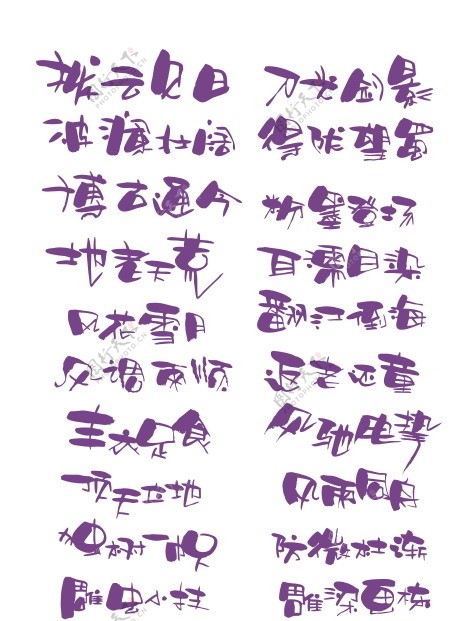 拨云见日
刀光剑影
波澜壮阔
得陇望蜀
博古通今
粉墨登场
地老天荒
耳濡目染
风花雪月
翻江倒海
风调雨顺
返老还童
丰衣足食
风驰电掣
顶天立地
风雨同舟
独树一帜
防微杜渐
雕虫小技
雕梁画栋